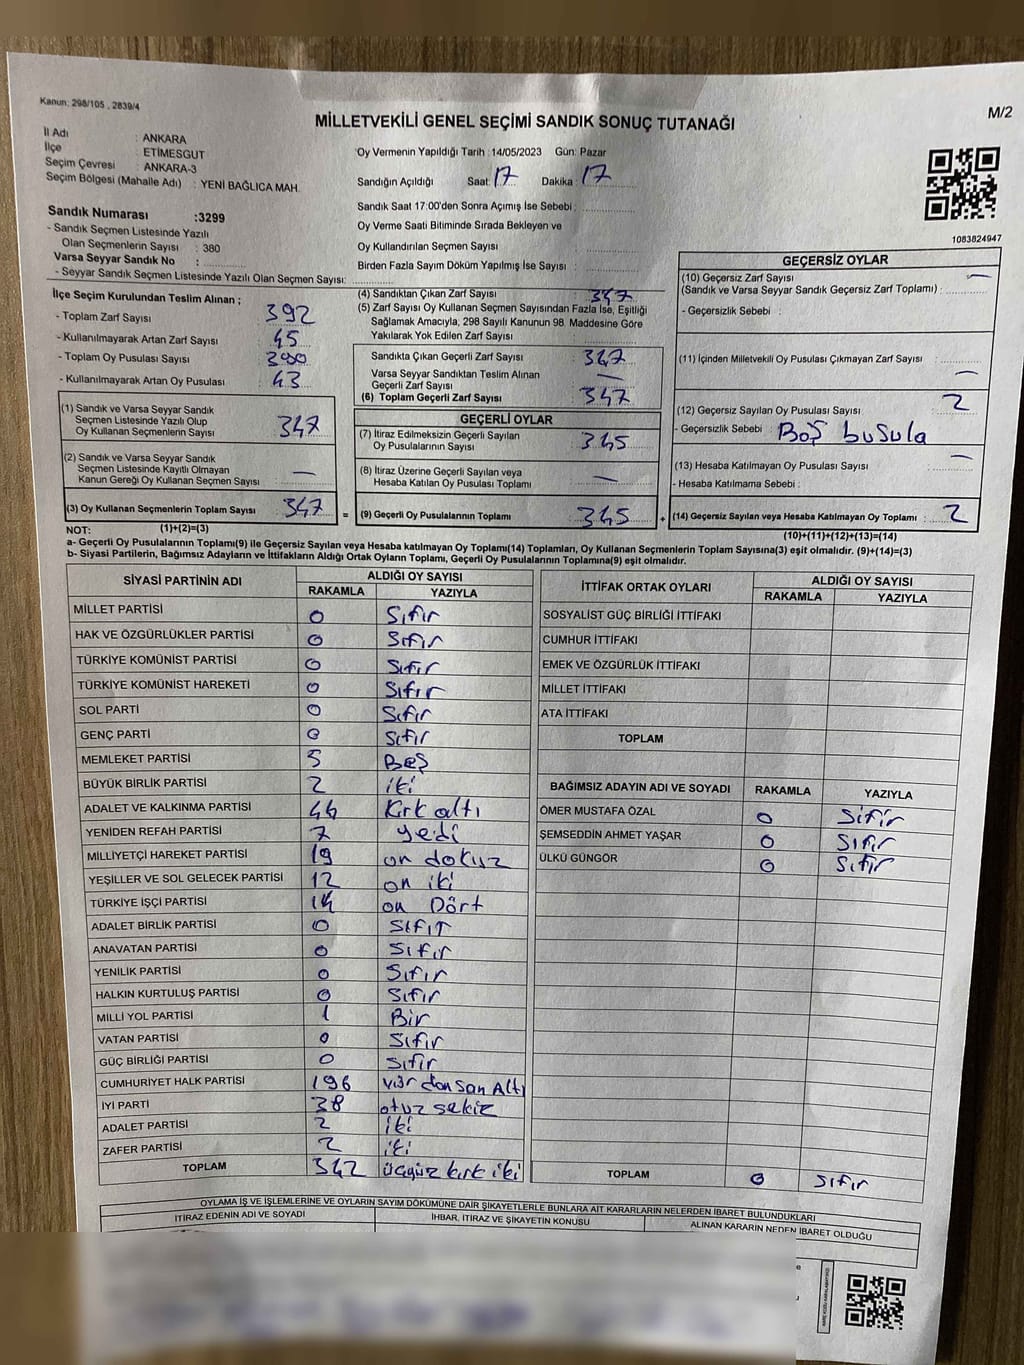 Kanun: 298/105 , 2839/4
M/2
MİLLETVEKİLİ GENEL SEÇİMİ SANDIK SONUÇ TUTANAĞI
İl Adı : ANKARA
İlçe : ETİMESGUT
Seçim Çevresi : ANKARA-3
Seçim Bölgesi (Mahalle Adı) : YENİ BAĞLICA MAH.
Sandık Numarası :3299
- Sandık Seçmen Listesinde Yazılı
Olan Seçmenlerin Sayısı : 380
Varsa Seyyar Sandık No :
- Seyyar Sandık Seçmen Listesinde Yazılı Olan Seçmen Sayısı:
Oy Vermenin Yapıldığı Tarih :14/05/2023 Gün: Pazar
Sandığın Açıldığı Saat: 17 Dakika : 17
Sandık Saat 17:00'den Sonra Açımış İse Sebebi :
Oy Verme Saati Bitiminde Sırada Bekleyen ve
Oy Kullandırılan Seçmen Sayısı
Birden Fazla Sayım Döküm Yapılmış İse Sayısı :
1083824947
İlçe Seçim Kurulundan Teslim Alınan ;
- Toplam Zarf Sayısı : 392
- Kullanılmayarak Artan Zarf Sayısı : 45
- Toplam Oy Pusulası Sayısı : 390
- Kullanılmayarak Artan Oy Pusulası : 43
(1) Sandık ve Varsa Seyyar Sandık
Seçmen Listesinde Yazılı Olup
Oy Kullanan Seçmenlerin Sayısı : 347
(2) Sandık ve Varsa Seyyar Sandık
Seçmen Listesinde Kayıtlı Olmayan
Kanun Gereği Oy Kullanan Seçmen Sayısı : —
(3) Oy Kullanan Seçmenlerin Toplam Sayısı : 347
(4) Sandıktan Çıkan Zarf Sayısı : 347
(5) Zarf Sayısı Oy Kullanan Seçmen Sayısından Fazla İse, Eşitliği
Sağlamak Amacıyla; 298 Sayılı Kanunun 98. Maddesine Göre
Yakılarak Yok Edilen Zarf Sayısı :
Sandıkta Çıkan Geçerli Zarf Sayısı : 347
Varsa Seyyar Sandıktan Teslim Alınan
Geçerli Zarf Sayısı : —
(6) Toplam Geçerli Zarf Sayısı : 347
GEÇERLİ OYLAR
(7) İtiraz Edilmeksizin Geçerli Sayılan
Oy Pusulalarının Sayısı : 345
(8) İtiraz Üzerine Geçerli Sayılan veya
Hesaba Katılan Oy Pusulası Toplamı : —
= (9) Geçerli Oy Pusulalarının Toplamı : 345
GEÇERSİZ OYLAR
(10) Geçersiz Zarf Sayısı —
(Sandık ve Varsa Seyyar Sandık Geçersiz Zarf Toplamı) :
- Geçersizlik Sebebi :
(11) İçinden Milletvekili Oy Pusulası Çıkmayan Zarf Sayısı : —
(12) Geçersiz Sayılan Oy Pusulası Sayısı : 2
- Geçersizlik Sebebi : Boş busula
(13) Hesaba Katılmayan Oy Pusulası Sayısı : —
- Hesaba Katılmama Sebebi :
+ (14) Geçersiz Sayılan veya Hesaba Katılmayan Oy Toplamı : 2
NOT: (1)+(2)=(3)
(10)+(11)+(12)+(13)=(14)
a- Geçerli Oy Pusulalarının Toplamı(9) ile Geçersiz Sayılan veya Hesaba katılmayan Oy Toplamı(14) Toplamları, Oy Kullanan Seçmenlerin Toplam Sayısına(3) eşit olmalıdır. (9)+(14)=(3)
b- Siyasi Partilerin, Bağımsız Adayların ve İttifakların Aldığı Ortak Oyların Toplamı, Geçerli Oy Pusulalarının Toplamına(9) eşit olmalıdır.
SİYASİ PARTİNİN ADI ALDIĞI OY SAYISI
RAKAMLA YAZIYLA
MİLLET PARTİSİ 0 Sıfır
HAK VE ÖZGÜRLÜKLER PARTİSİ 0 Sıfır
TÜRKİYE KOMÜNİST PARTİSİ 0 Sıfır
TÜRKİYE KOMÜNİST HAREKETİ 0 Sıfır
SOL PARTİ 0 Sıfır
GENÇ PARTİ 0 Sıfır
MEMLEKET PARTİSİ 5 Beş
BÜYÜK BİRLİK PARTİSİ 2 iki
ADALET VE KALKINMA PARTİSİ 46 Kırk altı
YENİDEN REFAH PARTİSİ 7 yedi
MİLLİYETÇİ HAREKET PARTİSİ 19 on dokuz
YEŞİLLER VE SOL GELECEK PARTİSİ 12 on iki
TÜRKİYE İŞÇİ PARTİSİ 14 on Dört
ADALET BİRLİK PARTİSİ 0 Sıfır
ANAVATAN PARTİSİ 0 Sıfır
YENİLİK PARTİSİ 0 Sıfır
HALKIN KURTULUŞ PARTİSİ 0 Sıfır
MİLLİ YOL PARTİSİ 1 Bir
VATAN PARTİSİ 0 Sıfır
GÜÇ BİRLİĞİ PARTİSİ 0 Sıfır
CUMHURİYET HALK PARTİSİ 196 Altı
İYİ PARTİ 38 otuz sekiz
ADALET PARTİSİ 2 iki
ZAFER PARTİSİ 2 iki
TOPLAM 342 üçyüz kırk iki
İTTİFAK ORTAK OYLARI ALDIĞI OY SAYISI
RAKAMLA YAZIYLA
SOSYALİST GÜÇ BİRLİĞİ İTTİFAKI
CUMHUR İTTİFAKI
EMEK VE ÖZGÜRLÜK İTTİFAKI
MİLLET İTTİFAKI
ATA İTTİFAKI
TOPLAM
BAĞIMSIZ ADAYIN ADI VE SOYADI RAKAMLA YAZIYLA
ÖMER MUSTAFA ÖZAL 0 Sıfır
ŞEMSEDDİN AHMET YAŞAR 0 Sıfır
ÜLKÜ GÜNGÖR 0 Sıfır
TOPLAM 0 Sıfır
OYLAMA İŞ VE İŞLEMLERİNE VE OYLARIN SAYIM DÖKÜMÜNE DAİR ŞİKAYETLERLE BUNLARA AİT KARARLARIN NELERDEN İBARET BULUNDUKLARI
İTİRAZ EDENİN ADI VE SOYADI İHBAR, İTİRAZ VE ŞİKAYETİN KONUSU ALINAN KARARIN NEDEN İBARET OLDUĞU